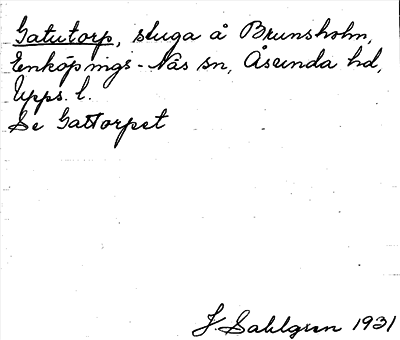 Gatutorp, stuga å Brunsholm,
Enköpings-Näs sn, Åsunda hd,
Upps. l.
Se Gattorpet
J. Sahlgren 1931